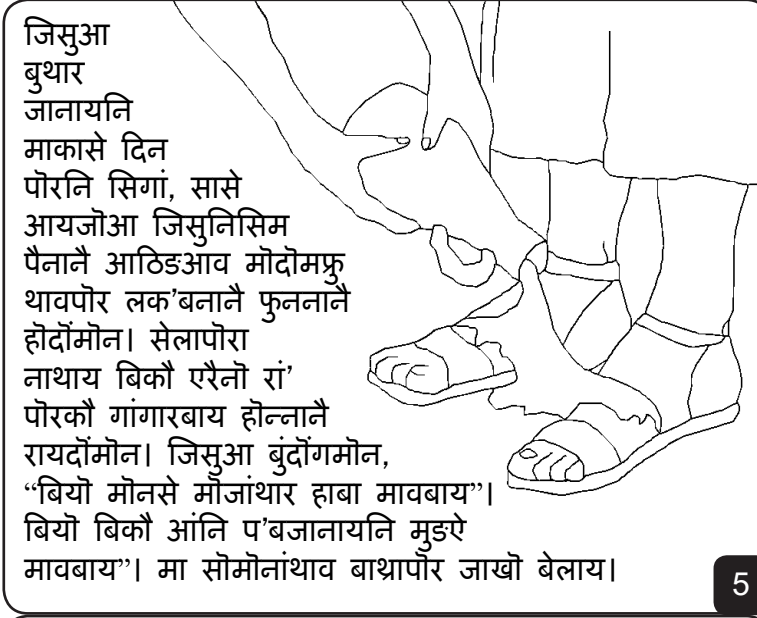 जिसुआ
बुथार
जानायनि
माकासे दिन
पॊरनि सिगां, सासे
आयजॊआ जिसुनिसिम
पैनानै आठिङआव मॊदॊमफ्रु
थावपॊर लक’बनानै फुननानै
हॊदॊंमॊन। सेलापॊरा
नाथाय बिकौ एरैनॊ रां’
पॊरकौ गांगारबाय हॊन्नानै
रायदॊंमॊन। जिसुआ बुंदॊंगमॊन,
“बियॊ मॊनसे मॊजांथार हाबा मावबाय”।
बियॊ बिकौ आंनि प’बजानायनि मुङऐ
मावबाय”। मा सॊमॊनांथाव बाथ्रापॊर जाखॊ बेलाय।
5